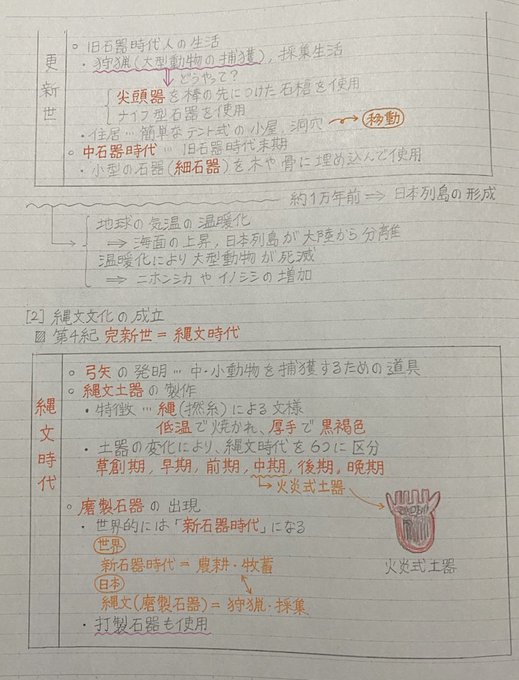 更新世
○ 旧石器時代人の生活
・狩猟(大型動物の捕獲), 採集生活
どうやって?
尖頭器を棒の先につけた石槍を使用
ナイフ型石器を使用
・住居…簡単なテント式の小屋, 洞穴 → 移動
○ 中石器時代…旧石器時代末期
・小型の石器(細石器)を木や骨に埋め込んで使用
約1万年前 ⇒ 日本列島の形成
地球の気温の温暖化
⇒ 海面の上昇, 日本列島が大陸から分離
温暖化により大型動物が死滅
⇒ ニホンシカやイノシシの増加
[2] 縄文文化の成立
▨ 第4紀 完新世 = 縄文時代
縄文時代
○ 弓矢の発明…中・小動物を捕獲するための道具
○ 縄文土器の製作
・特徴…縄(撚糸)による文様
低温で焼かれ, 厚手で黒褐色
・土器の変化により、縄文時代を6つに区分
草創期, 早期, 前期, 中期, 後期, 晩期
→ 火炎式土器
○ 磨製石器の出現
・世界的には「新石器時代」になる
世界
新石器時代 = 農耕・牧畜
日本
縄文(磨製石器) = 狩猟・採集
・打製石器も使用
火炎式土器